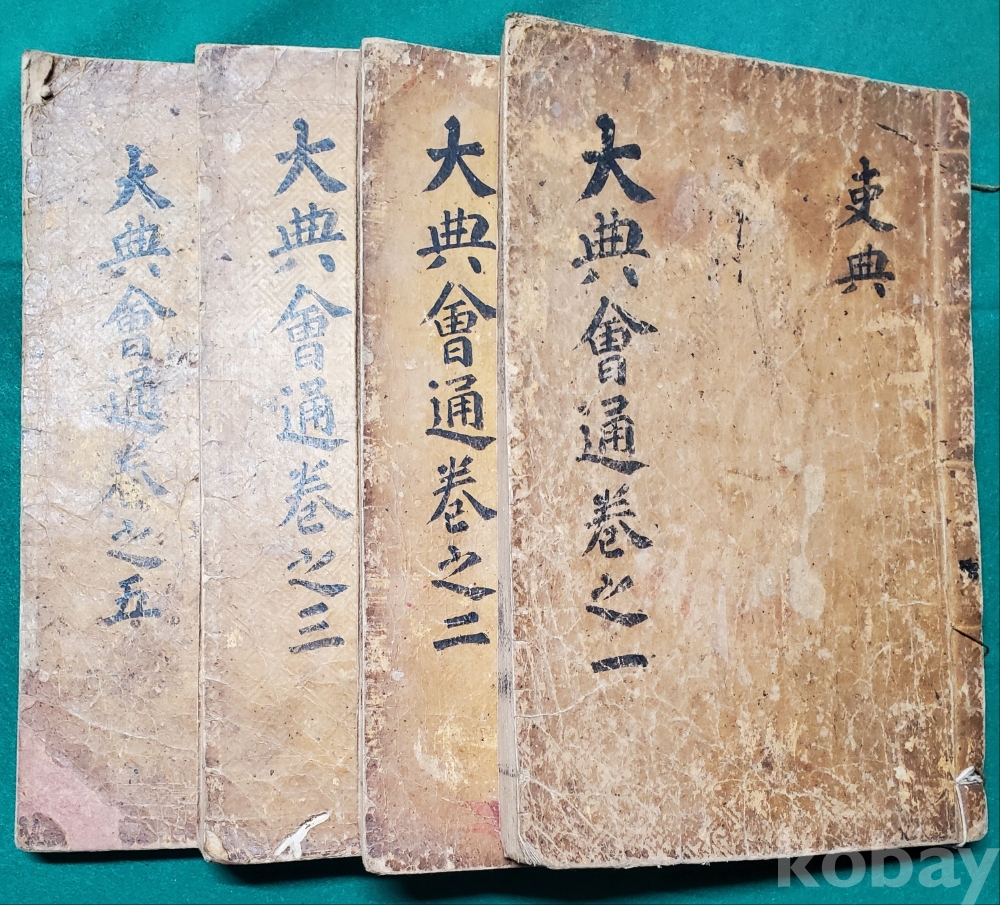 吏典
大典會通卷之一
大典會通卷之二
大典會通卷之三
大典會通卷之五
kobay